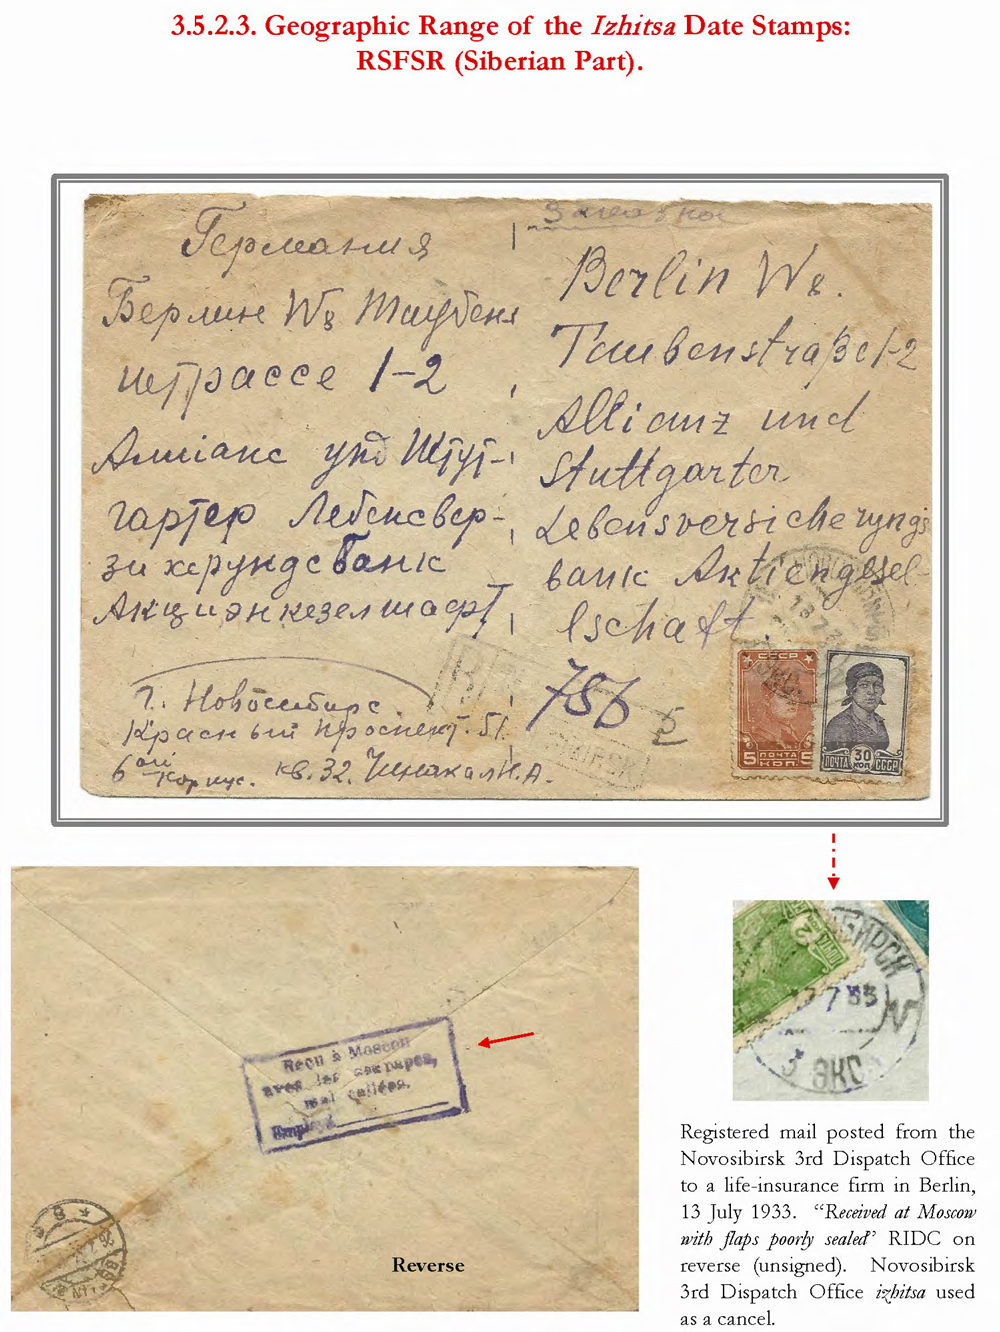 3.5.2.3. Geographic Range of the Izhitsa Date Stamps:
RSFSR (Siberian Part).
Заказное
Германия
Берлин W8 Таубен
штрассе 1-2
Аллианс унд Штут-
гартер Лебенсвер-
зихерундсбанк
Акциэнкезелшафт
Berlin W8.
Taubenstraße 1-2
Allianz und
Stuttgarter
Lebensversicherungs
bank Aktiengesel-
lschaft.
г. Новосибирс.
Красный проспект. 51.
6ой корпус. кв. 32. Чинакал Н.А.
R
756
СССР
5 ПОЧТА 5
КОП.
30
ПОЧТА КОП. СССР
7 33
3 ЭКС
Reçu à Moscou
avec les
mal collées.
Employé
8
Reverse
Registered mail posted from the
Novosibirsk 3rd Dispatch Office
to a life-insurance firm in Berlin,
13 July 1933. “Received at Moscow
with flaps poorly sealed” RIDC on
reverse (unsigned). Novosibirsk
3rd Dispatch Office izhitsa used
as a cancel.